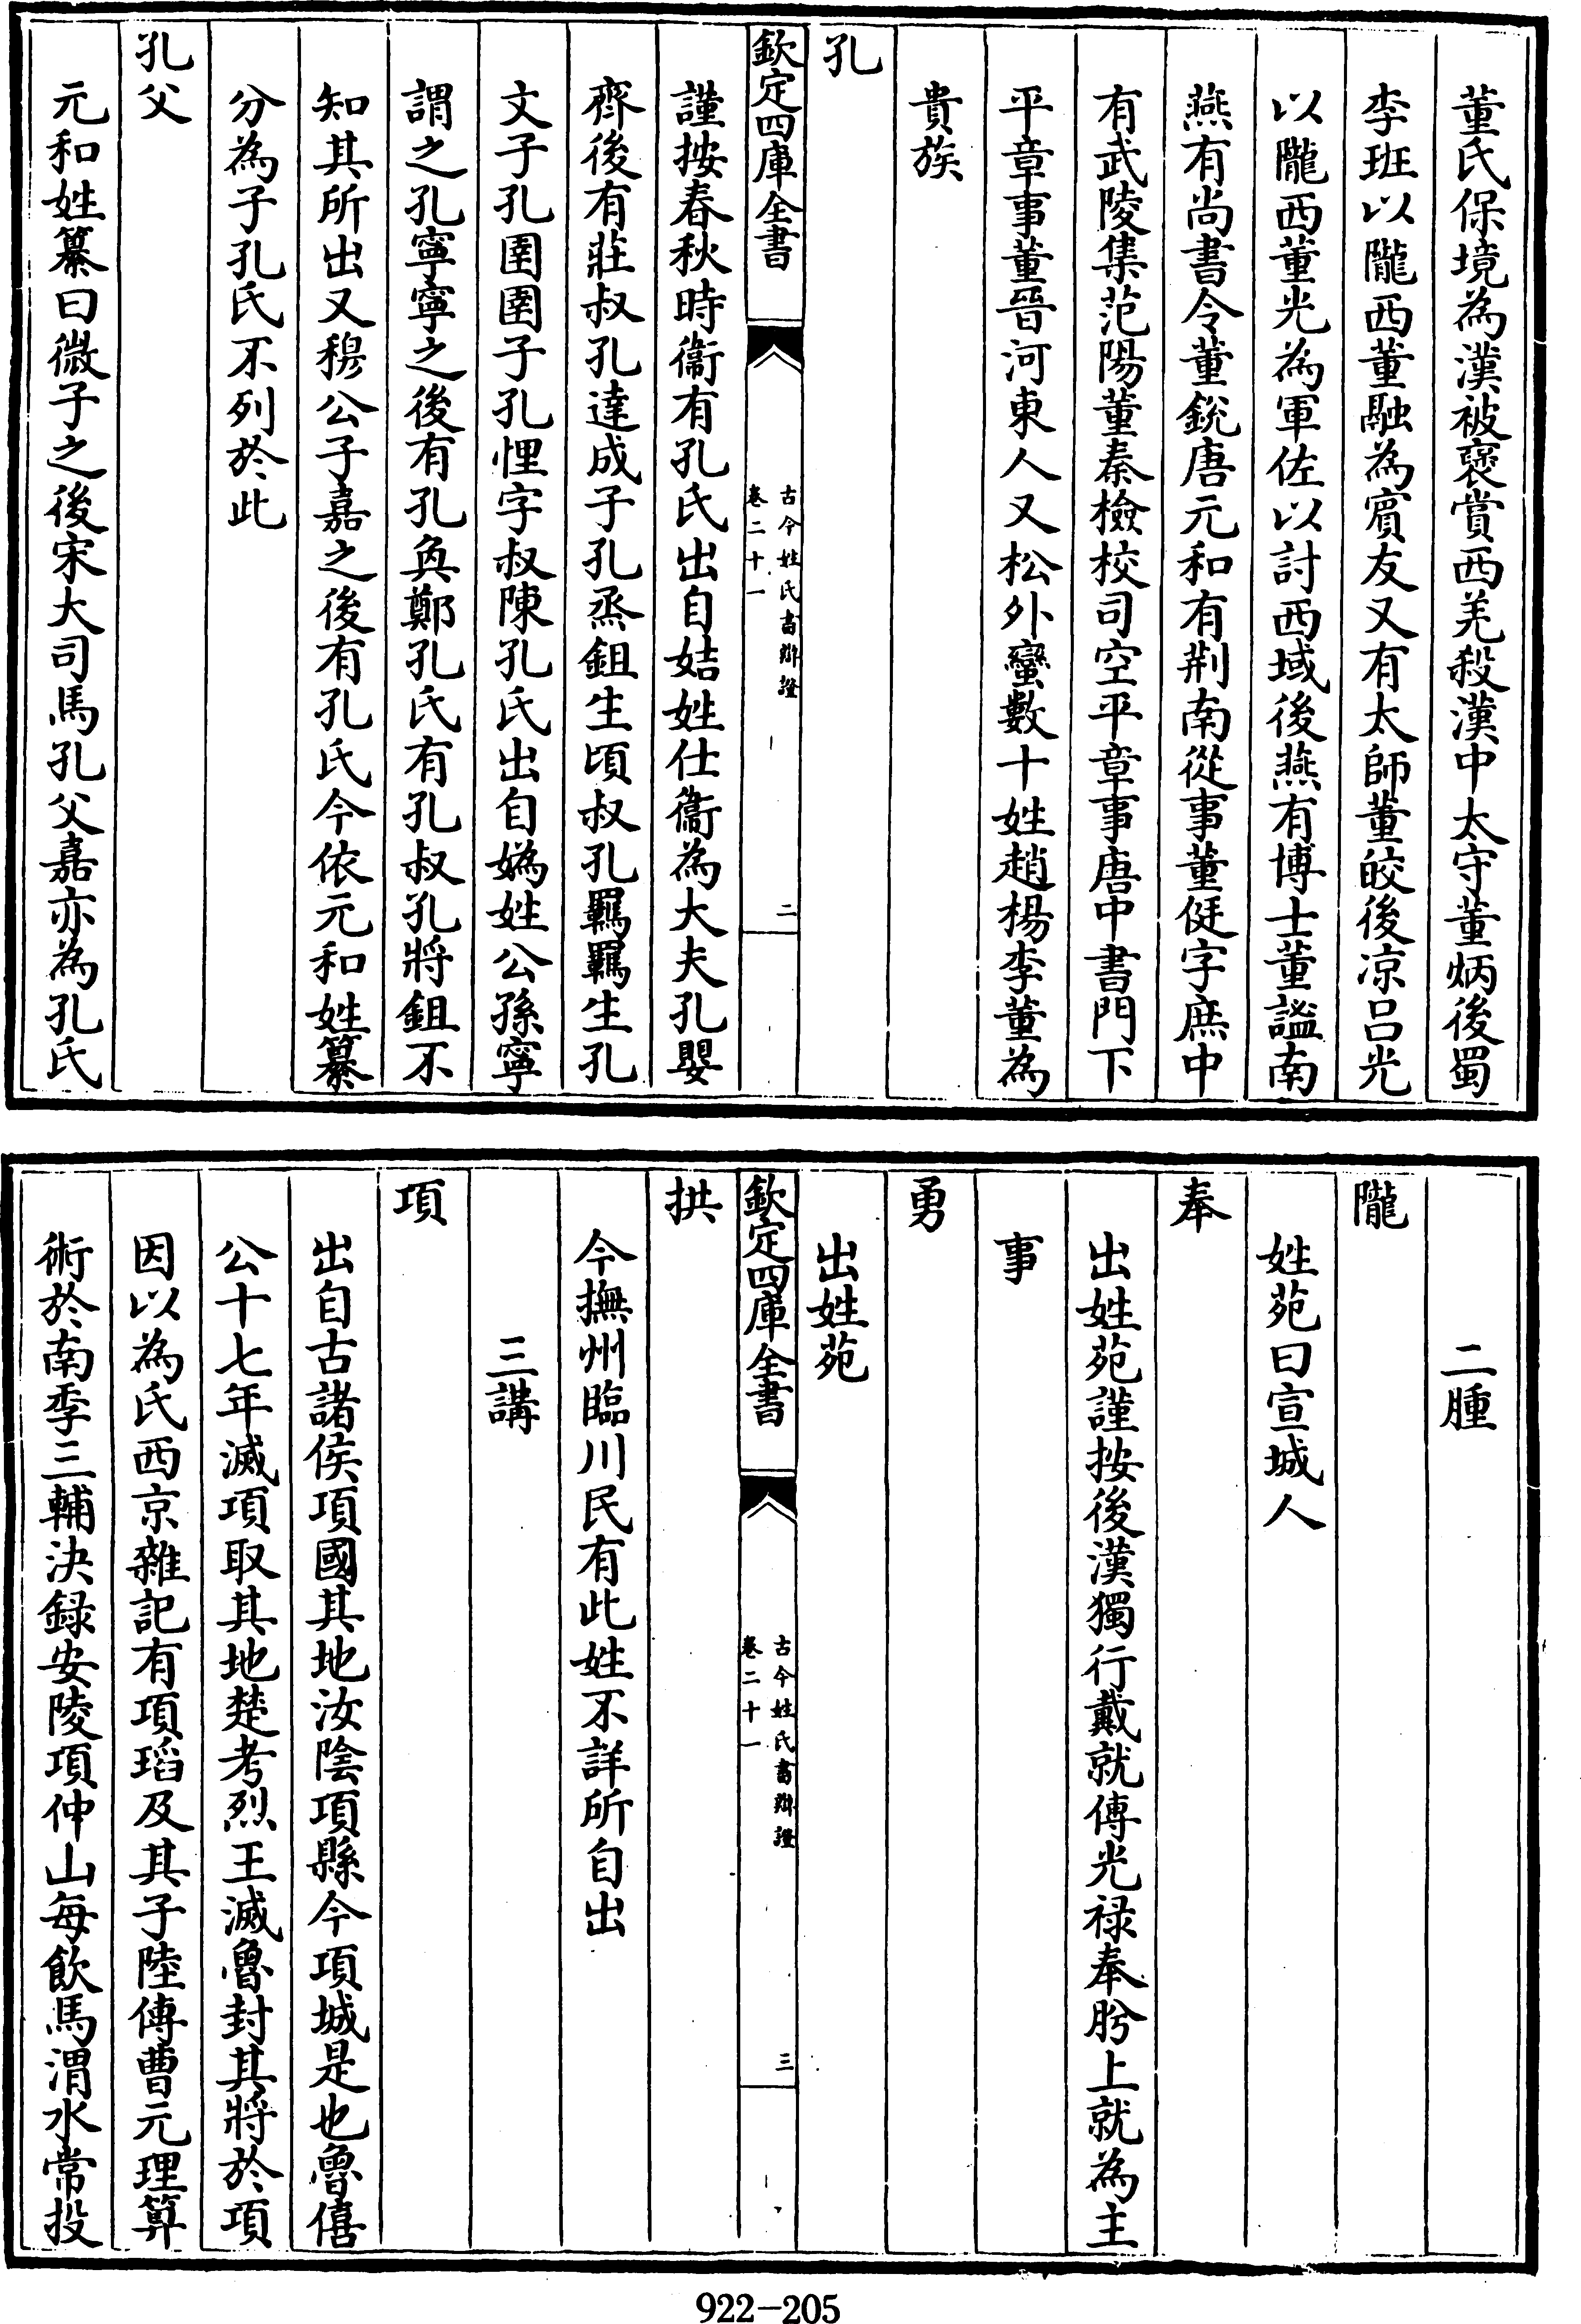 董氏保境為漢被褒賞西羌殺漢中太守董炳後蜀
李班以隴西董融為賓友又有太師董皎後凉吕光
以隴西董光為軍佐以討西域後燕有博士董謐南
燕有尚書令董銳唐元和有荆南從事董侹字庶中
有武陵集范陽董秦檢校司空平章事唐中書門下
平章事董晉河東人又松外蠻數十姓趙楊李董為
貴族
孔
欽定四庫全書
古今姓氏書辯證
卷二十一
二
謹按春秋時衞有孔氏出自姞姓仕衞為大夫孔嬰
齊後有莊叔孔達成子孔烝鉏生頃叔孔羈羈生孔
文子孔圉圉子孔悝字叔陳孔氏出自媯姓公孫寧
謂之孔寧寧之後有孔奐鄭孔氏有孔叔孔將鉏不
知其所出又穆公子嘉之後有孔氏今依元和姓纂
分為子孔氏不列於此
孔父
元和姓纂曰微子之後宋大司馬孔父嘉亦為孔氏
二腫
隴
姓苑曰宣城人
奉
出姓苑謹按後漢獨行戴就傳光祿奉肹上就為主
事
勇
出姓苑
欽定四庫全書
古今姓氏書辯證
卷二十一
三
拱
今撫州臨川民有此姓不詳所自出
三講
項
出自古諸侯項國其地汝陰項縣今項城是也魯僖
公十七年滅項取其地楚考烈王滅魯封其將於項
因以為氏西京雜記有項瑫及其子陸傳曹元理算
術於南季三輔決録安陵項仲山每飲馬渭水常投
922-205